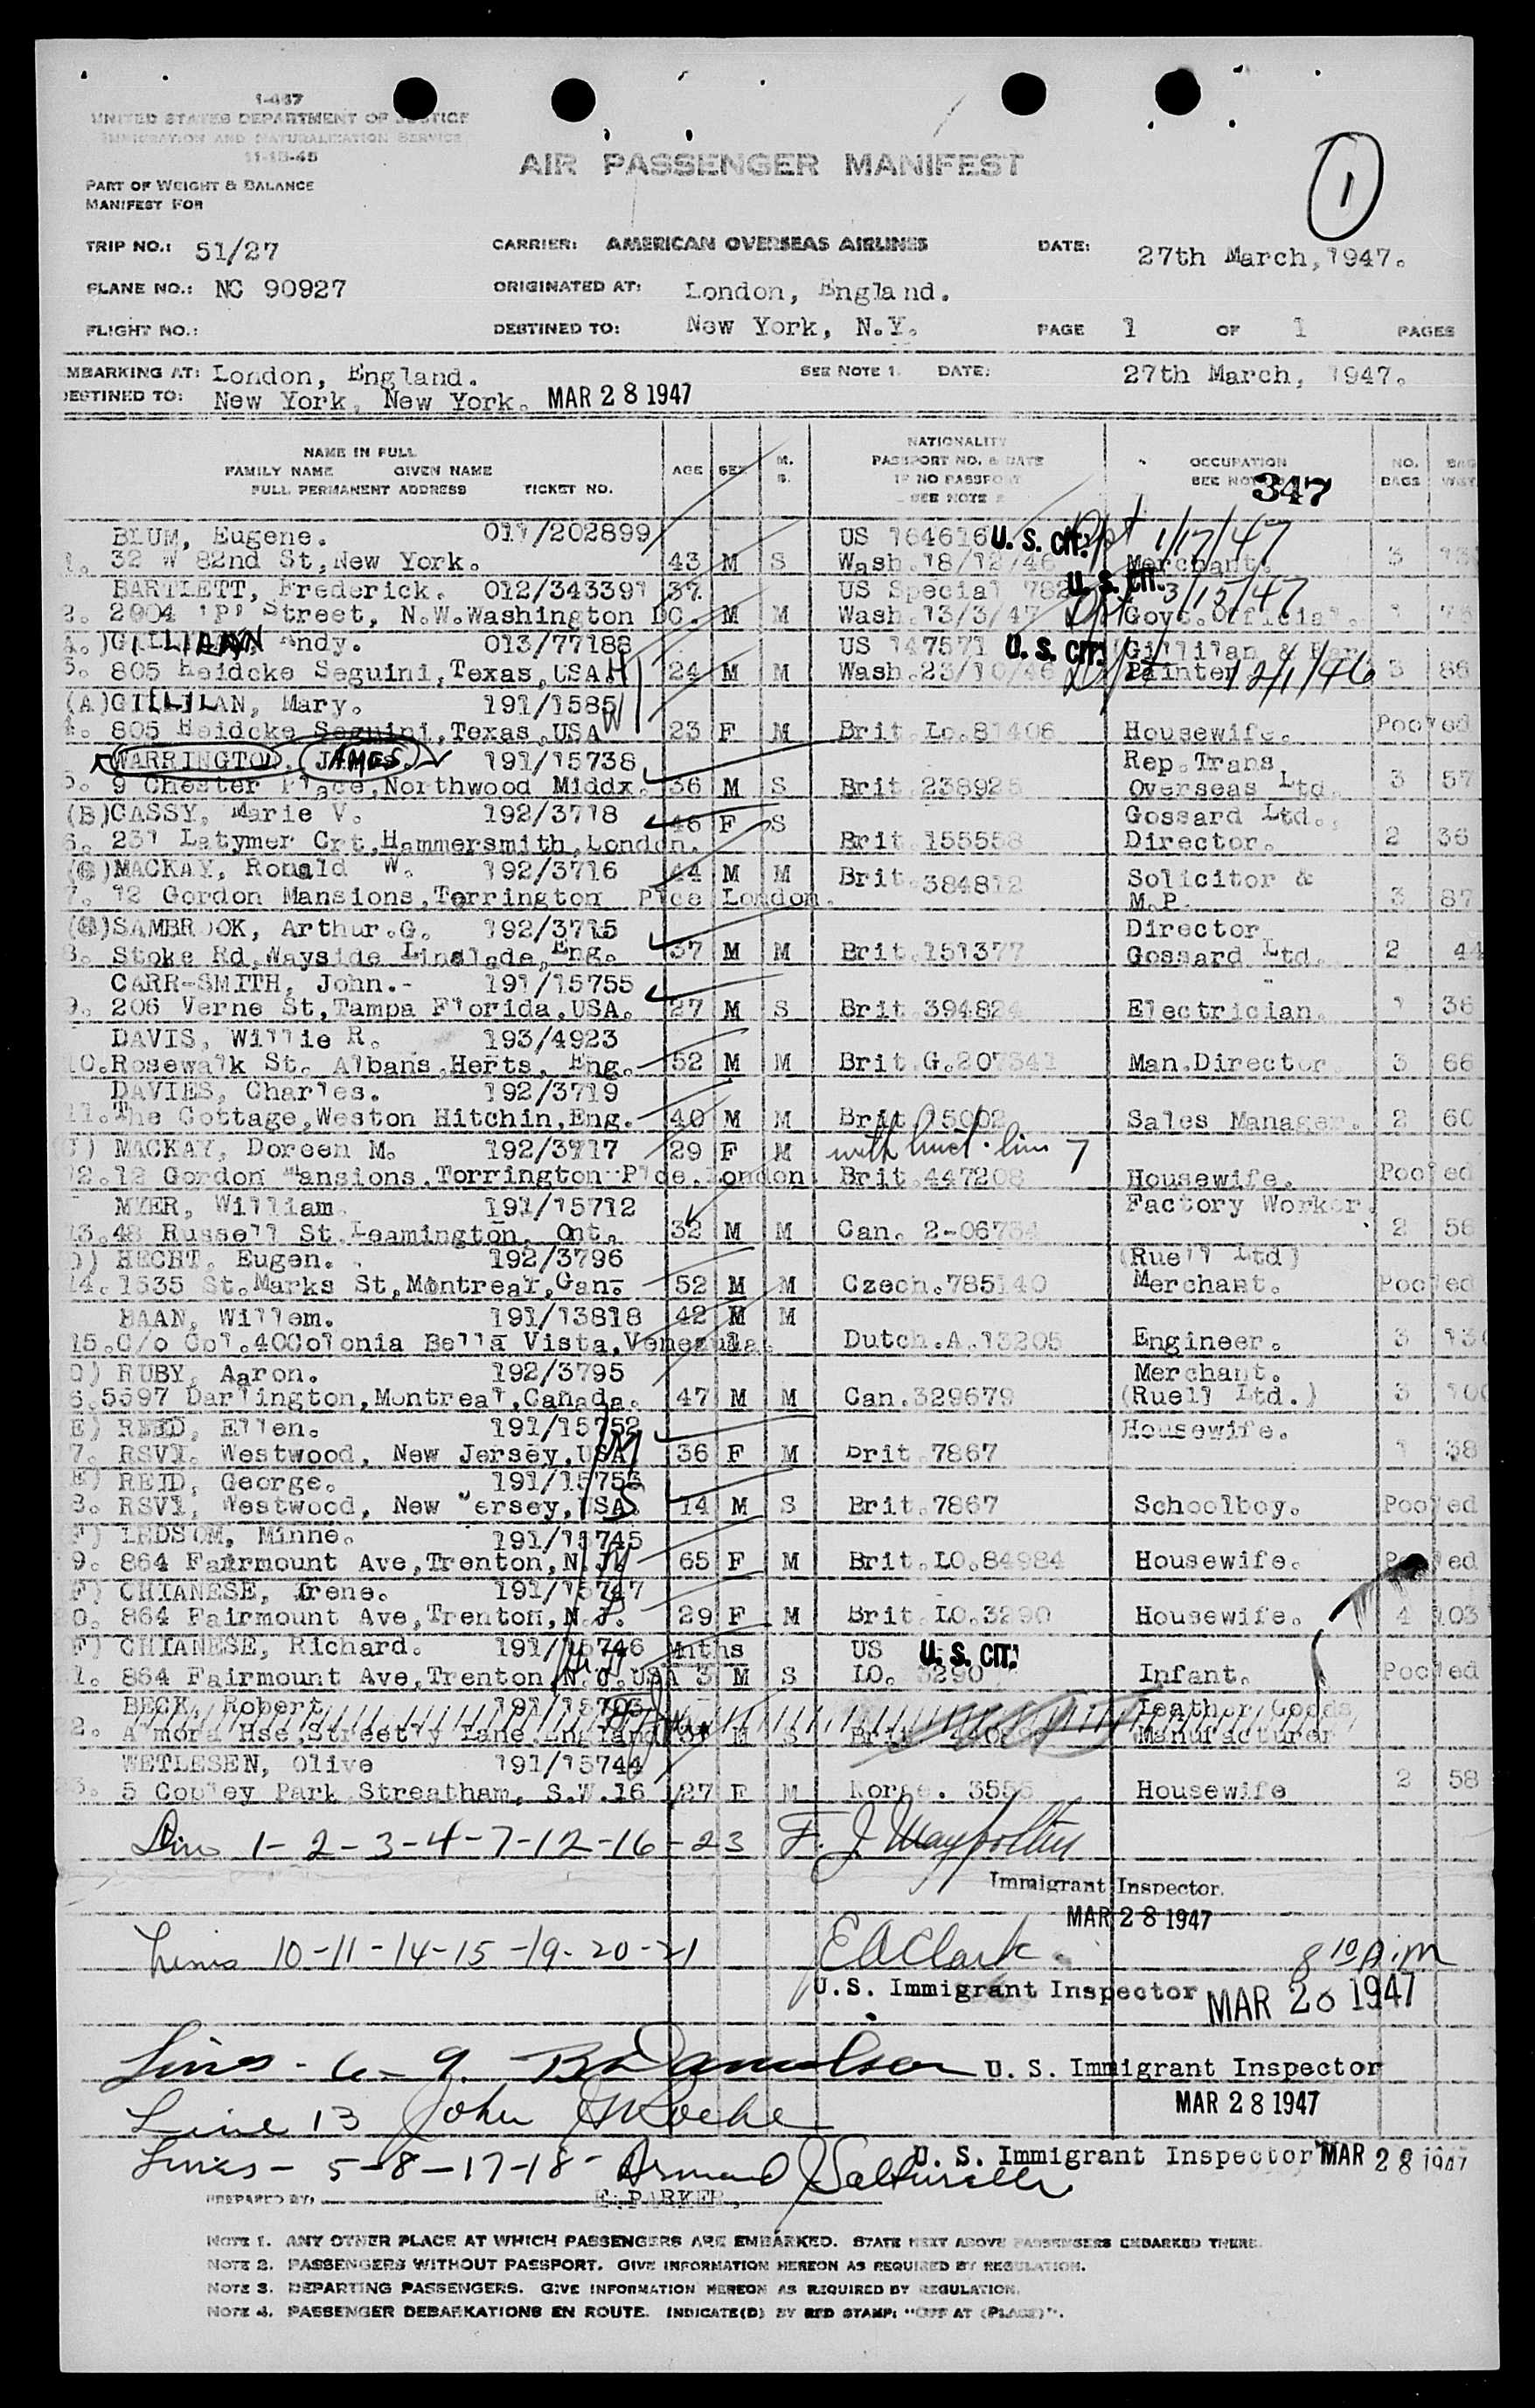 1-467
UNITED STATES DEPARTMENT OF JUSTICE
IMMIGRATION AND NATURALIZATION SERVICE
11-15-45
AIR PASSENGER MANIFEST
1
PART OF WEIGHT & BALANCE
MANIFEST FOR
TRIP NO.: 51/27 CARRIER: AMERICAN OVERSEAS AIRLINES DATE: 27th March, 1947.
PLANE NO.: NC 90927 ORIGINATED AT: London, England.
FLIGHT NO.: DESTINED TO: New York, N.Y. PAGE 1 OF 1 PAGES
MBARKING AT: London, England. SEE NOTE 1. DATE: 27th March, 1947.
DESTINED TO: New York, New York. MAR 28 1947
NAME IN FULL
FAMILY NAME GIVEN NAME
FULL PERMANENT ADDRESS TICKET NO. AGE SEX M. S.
NATIONALITY
PASSPORT NO. & DATE
IF NO PASSPORT
SEE NOTE
OCCUPATION
SEE NOTE
NO. BAGS
347
BLUM, Eugene. 011/202899 US 164616 U. S. CIT. 1/17/47
1. 32 W 82nd St, New York. 43 M S Wash. 18/12/46 Merchant. 3
BARTLETT, Frederick. 012/343391 37 US Special 782 U. S. CIT. 3/13/47
2. 2904 'P' Street, N.W. Washington DC. M M Wash. 13/3/47 Govt. Official. 1
GILLILAN, Andy. 013/77188 US 147571 U. S. CIT. Gillilan &
3. 805 Heidcke Seguini, Texas, USA. 24 M M Wash. 23/10/46 Painter 12/1/46 3 86
(A)GILLILAN, Mary. 191/1585
4. 805 Heidcke Seguini, Texas, USA W 23 F M Brit. Lo. 81406 Housewife. Pooled
WARRINGTON, JAMES. 191/15738 Rep. Trans
5. 9 Chester Place, Northwood Middx. 36 M S Brit. 238925 Overseas Ltd. 3 57
(B)GASSY, Marie V. 192/3718 46 F S Gossard Ltd.,
6. 231 Latymer Crt, Hammersmith, London. Brit. 155558 Director. 2 36
MACKAY, Ronald W. 192/3716 44 M M Brit. 384812 Solicitor &
7. 12 Gordon Mansions, Torrington Plce London. M.P. 3 87
SAMBROOK, Arthur.G. 192/3715 Director
8. Stoke Rd, Wayside Linslade, Eng. 37 M M Brit. 151377 Gossard Ltd. 2 44
CARR-SMITH, John.- 191/15755
9. 206 Verne St, Tampa Florida, USA. 27 M S Brit. 394824 Electrician. 1 36
DAVIS, Willie R. 193/4923
10. Rosewalk St. Albans, Herts, Eng. 52 M M Brit. G. 207341 Man. Director 3 66
DAVIES, Charles. 192/3719
11. The Cottage, Weston Hitchin, Eng. 40 M M Brit 15002 Sales Manager. 2 60
MACKAY, Doreen M. 192/3717 29 F M with husd. line 7
12. 12 Gordon Mansions, Torrington Plce, London Brit. 447208 Housewife. Pooled
MYER, William. 191/15712 Factory Worker.
13. 48 Russell St. Leamington, Ont. 32 M M Can. 2-06734 2 56
HECHT, Eugen. 192/3796 (Ruell Ltd)
14. 1535 St. Marks St, Montreal, Can. 52 M M Czech. 785140 Merchant. Pooled
HAAN, Willem. 191/13818 42 M M
15. C/o Col. 40Colonia Bella Vista, Venezuela. Dutch. A. 13205 Engineer. 3
RUBY, Aaron. 192/3795 Merchant.
6. 5597 Darlington, Montreal, Canada. 47 M M Can. 329679 (Ruell Ltd.) 3
E) REID, Ellen. 191/15752 Housewife.
7. RSV1. Westwood, New Jersey, USA 36 F M Brit 7867 1 38
E) REID, George. 191/15753
8. RSV1, Westwood, New Jersey, USA. 14 M S Brit. 7867 Schoolboy. Pooled
F) LEDSOM, Minne. 191/15745
9. 864 Fairmount Ave, Trenton, N.J. 65 F M Brit. LO. 84984 Housewife. Pooled
F) CHIANESE, Irene. 191/15747
0. 864 Fairmount Ave, Trenton, N.J. 29 F M Brit. LO. 3290 Housewife. 4 103
F) CHIANESE, Richard. 191/15746 Mnths US U. S. CIT.
1. 864 Fairmount Ave, Trenton, N.J. USA 3 M S LO. 3290 Infant. Pooled
BECK, Robert 191/15703 Leather Goods
2. Almora Hse, Streetly Lane, England M S Brit Manufacturer
WETLESEN, Olive 191/15744
3. 5 Copley Park Streatham, S.W.16 27 F M Norge. 3555 Housewife 2 58
Lins 1-2-3-4-7-12-16-23 F. J.
Immigrant Inspector.
MAR 28 1947
Lines 10-11-14-15-19-20-21 E A Clark. 8 10 p.m
U.S. Immigrant Inspector MAR 28 1947
Lines - 6-9. U. S. Immigrant Inspector
MAR 28 1947
Line 13 John Roche
U. S. Immigrant Inspector MAR 28 1947
Lines - 5-8-17-18- Armand J
PREPARED BY: E. PARKER,
NOTE 1. ANY OTHER PLACE AT WHICH PASSENGERS ARE EMBARKED. STATE NEXT ABOVE PASSENGERS EMBARKED THERE.
NOTE 2. PASSENGERS WITHOUT PASSPORT. GIVE INFORMATION HEREON AS REQUIRED BY REGULATION.
NOTE 3. DEPARTING PASSENGERS. GIVE INFORMATION HEREON AS REQUIRED BY REGULATION.
NOTE 4. PASSENGER DEBARKATIONS EN ROUTE. INDICATE(D) BY RED STAMP: "OFF AT (PLACE)".